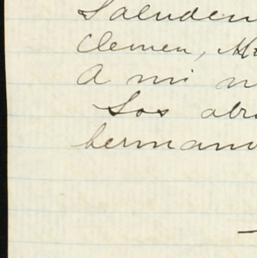 Saluden
Clemen,
A mi
Los abr
herman